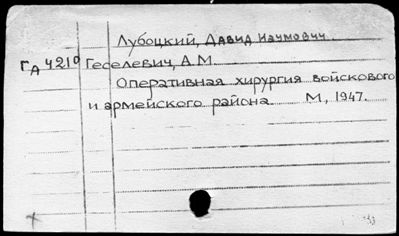 Лубоцкий, Давид Наумович.
Гд 4210 Геселевич, А.М.
Оперативная хирургия войскового
и армейского района. М, 1947.